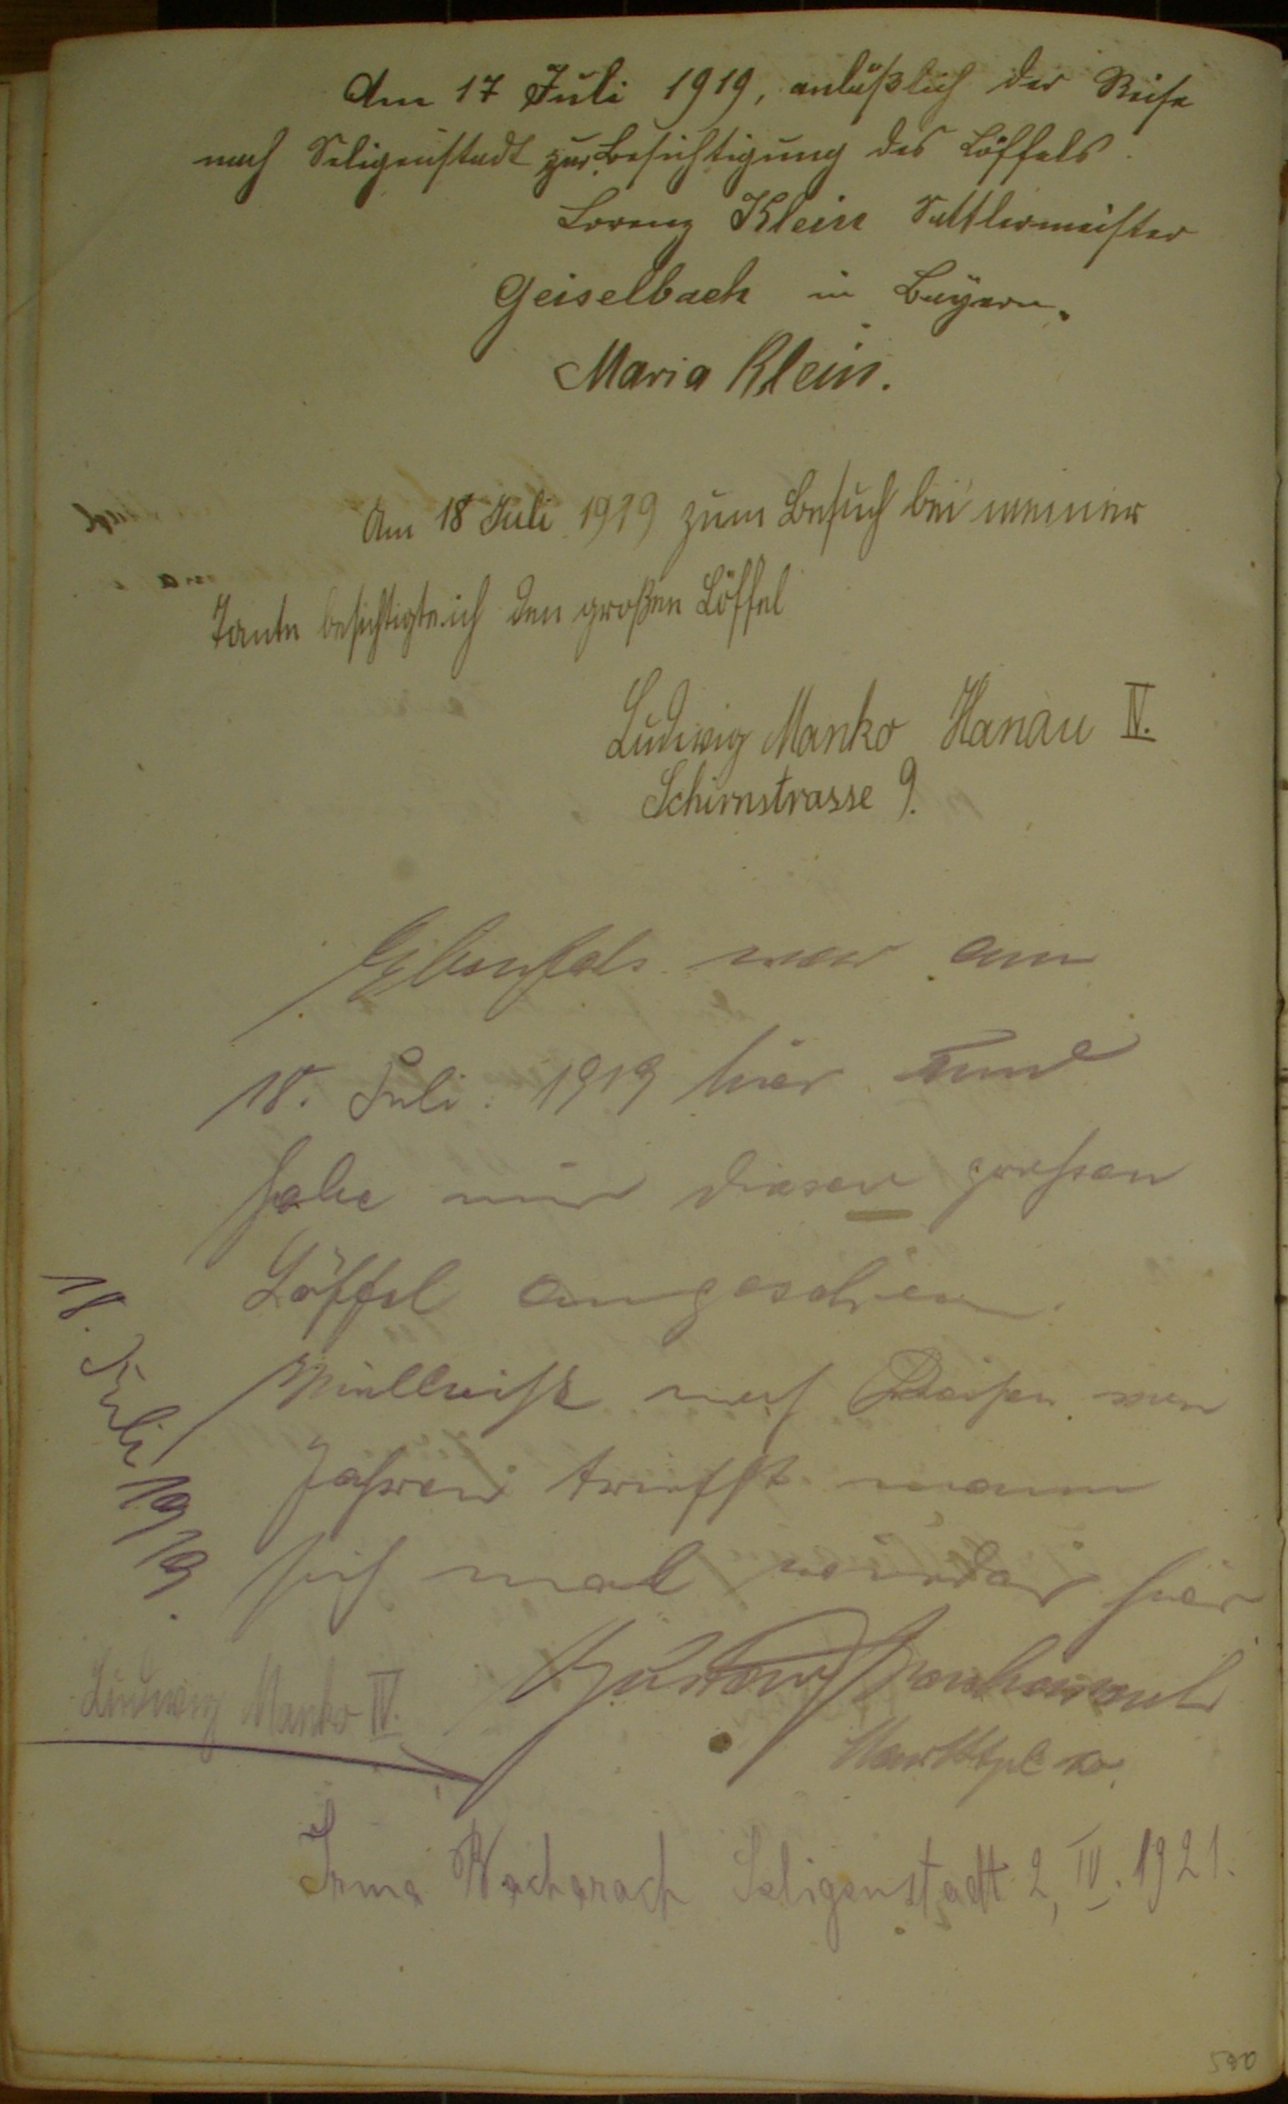 Am 17 Juli 1919, anläßlich der Reise
nach Seligenstadt zur Besichtigung des Löffels
Lorenz Klein Sattlermeister
Geiselbach in Bayern.
Maria Klein.
Am 18 Juli 1919 zum Besuch bei meiner
Tante besichtigte ich den großen Löffel
Ludwig Manko Hanau IV.
Schirnstrasse 9.
Ebenfals war am
18. Juli. 1919 hier und
habe mir diesen großen
Löffel angesehen.
Vielleicht nach
Jahren trifft mann
sich mal wieder hier
Gustav
Marktpl 10.
18. Juli 1919.
Ludwig Manko IV.
Irma Bacharach Seligenstadt 2, IV. 1921.
590